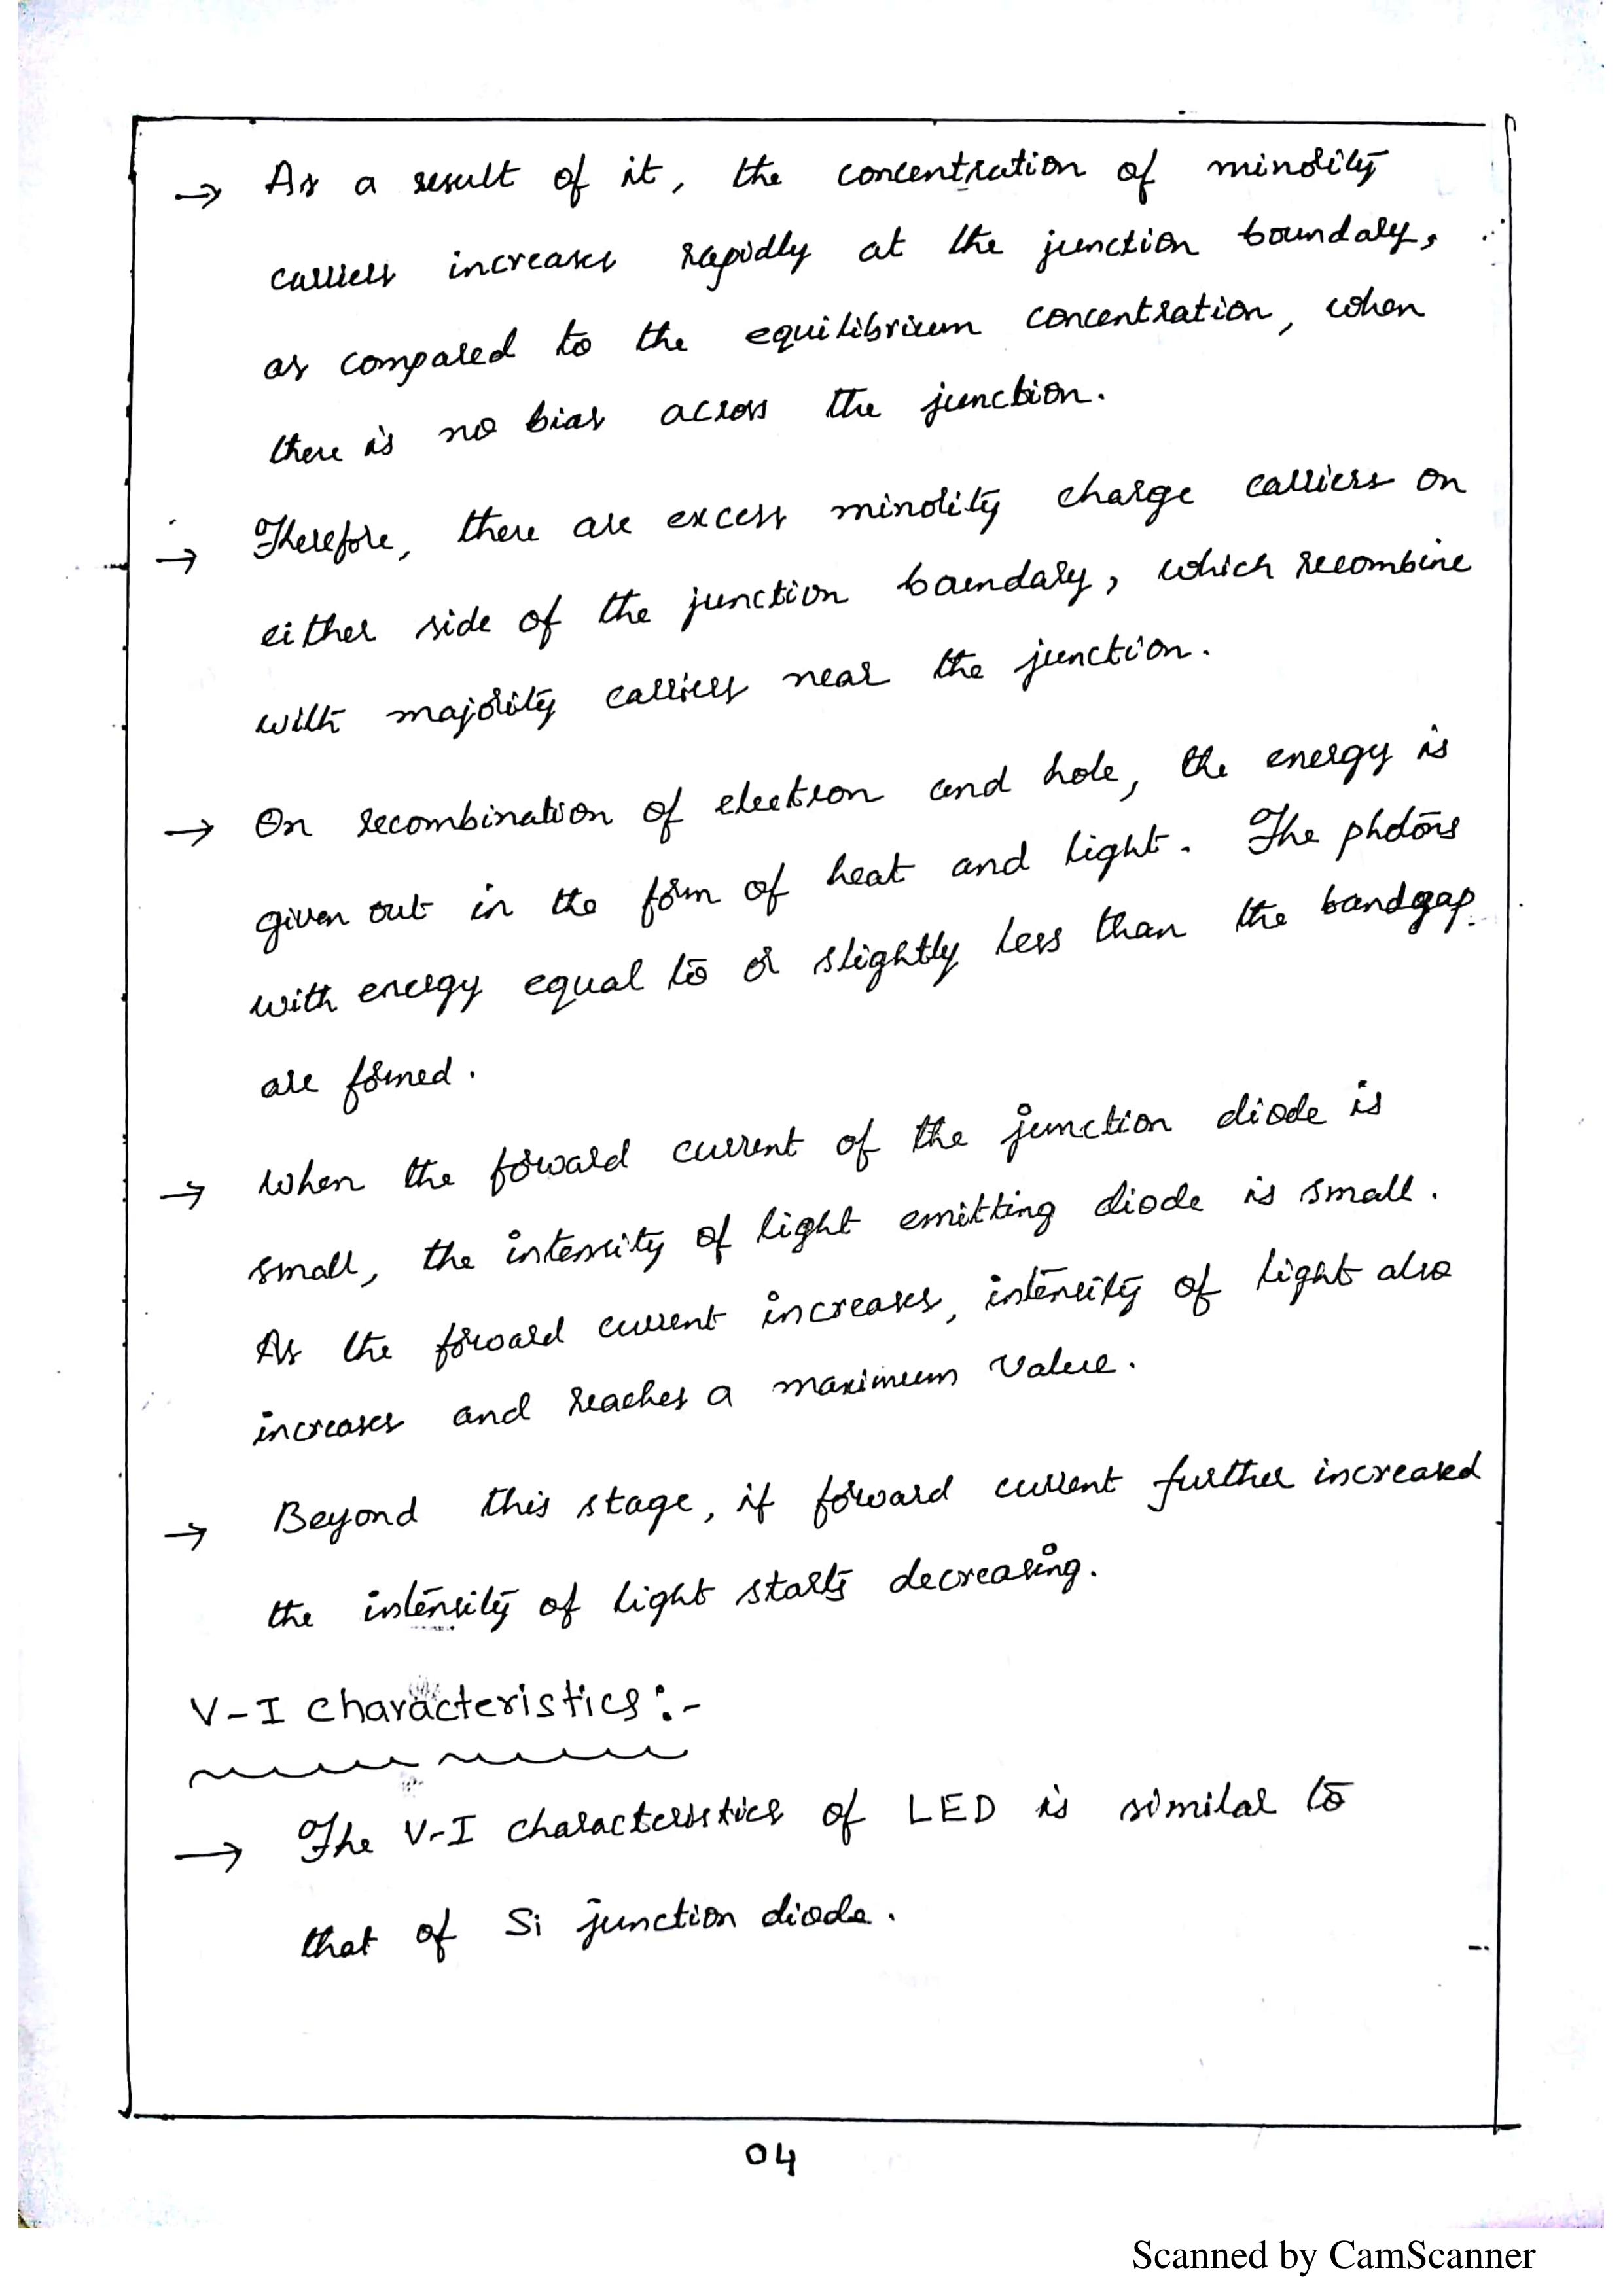 → As a result of it, the concentration of minority
carriers increases rapidly at the junction boundary,
as compared to the equilibrium concentration, when
there is no bias across the junction.
→ Therefore, there are excess minority charge carriers on
either side of the junction boundary, which recombine
with majority carriers near the junction.
→ On recombination of electron and hole, the energy is
given out in the form of heat and light. The photons
with energy equal to or slightly less than the bandgap
are formed.
→ When the forward current of the junction diode is
small, the intensity of light emitting diode is small.
As the forward current increases, intensity of light also
increases and reaches a maximum value.
→ Beyond this stage, if forward current further increased
the intensity of light starts decreasing.
V-I Characteristics:-
→ The V-I characteristics of LED is similar to
that of Si junction diode.
04
Scanned by CamScanner